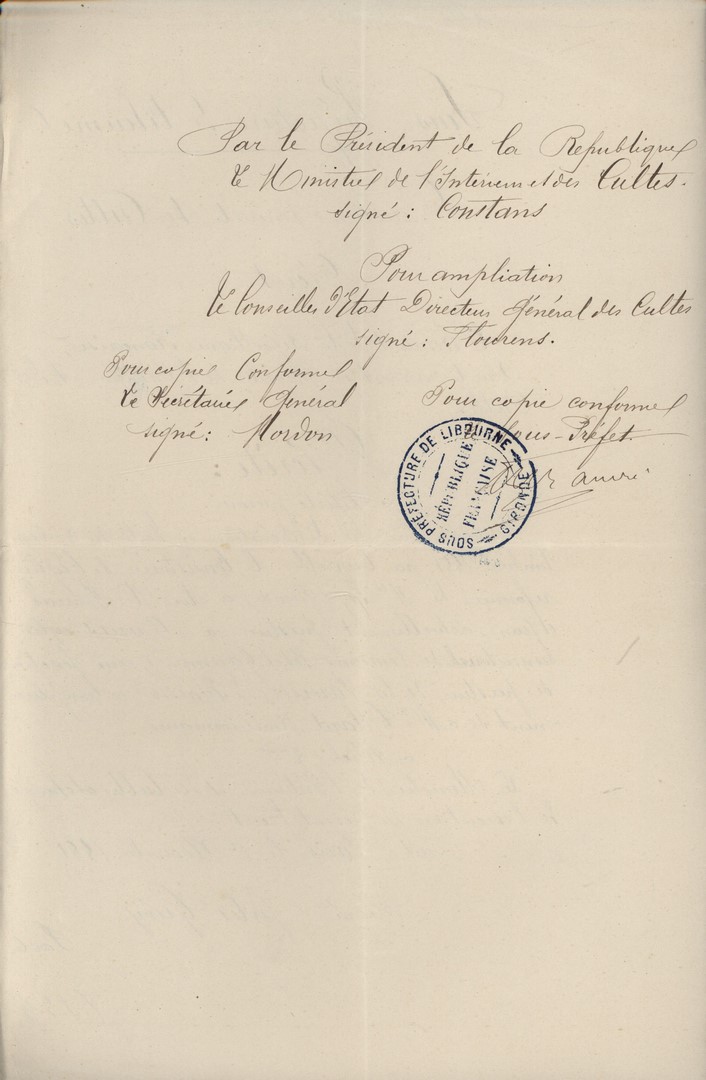 Par le Président de la Republique
Le Ministre de l'Intérieur et des Cultes.
signé : Constans
Pour ampliation
Le Conseiller d'Etat Directeur Général des Cultes
signé : Flourens.
Pour copie Conforme
Le Secrétaire Général
signé : Mordon
Pour copie conforme
Sous-Préfet
SOUS PRÉFECTURE DE LIBOURNE
GIRONDE
RÉPUBLIQUE
FRANÇAISE